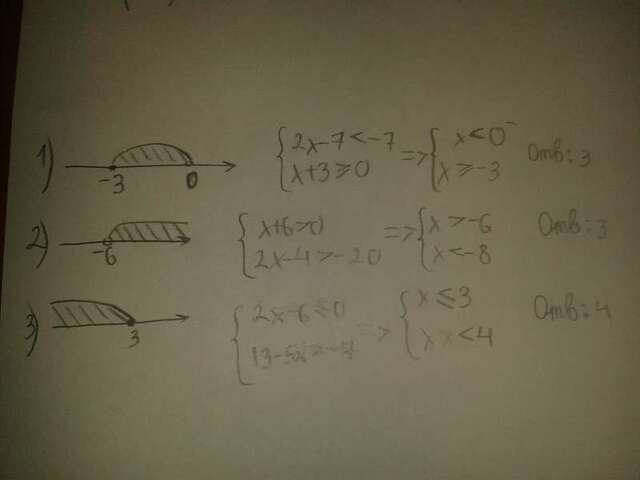 1) -3 0 { 2x-7<-7 x+3≥0 => { x<0 x≥-3 Отв: 3
2) -6 { x+6>0 2x-4>-20 => { x>-6 x<-8 Отв: 3
3) 3 { 2x-6≤0 => { x≤3 x<4 Отв: 4